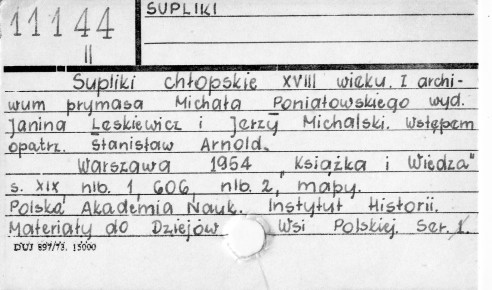 11144
II
SUPLIKI
Supliki chłopskie XVIII wieku. I archi-
wum prymasa Michała Poniatowskiego wyd.
Janina Leskiewicz i Jerzy Michalski. Wstępem
opatrz. Stanisław Arnold.
Warszawa 1954 "Książka i Wiedza"
s. XIX, nlb. 1, 606, nlb. 2, mapy.
Polska Akademia Nauk. Instytut Historii.
Materiały do Dziejów Wsi Polskiej. Ser. 1.
DUJ 897/73. 15000